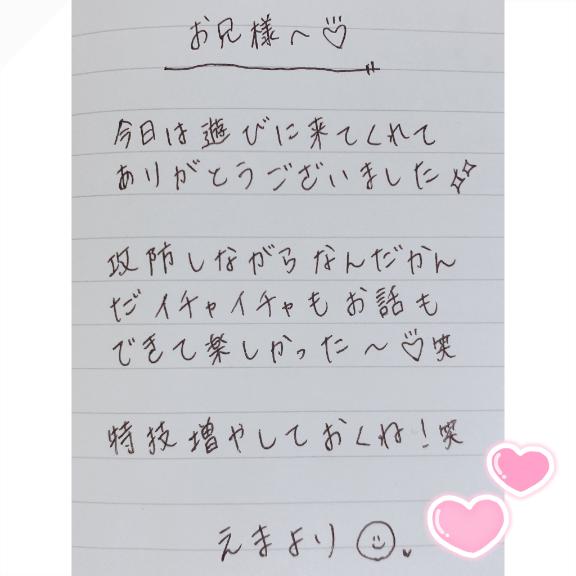 お兄様へ♡
今日は遊びに来てくれて
ありがとうございました✨
攻防しながらなんだかん
だイチャイチャもお話も
できて楽しかった〜♡笑
特技増やしておくね!笑
えまより☺♥